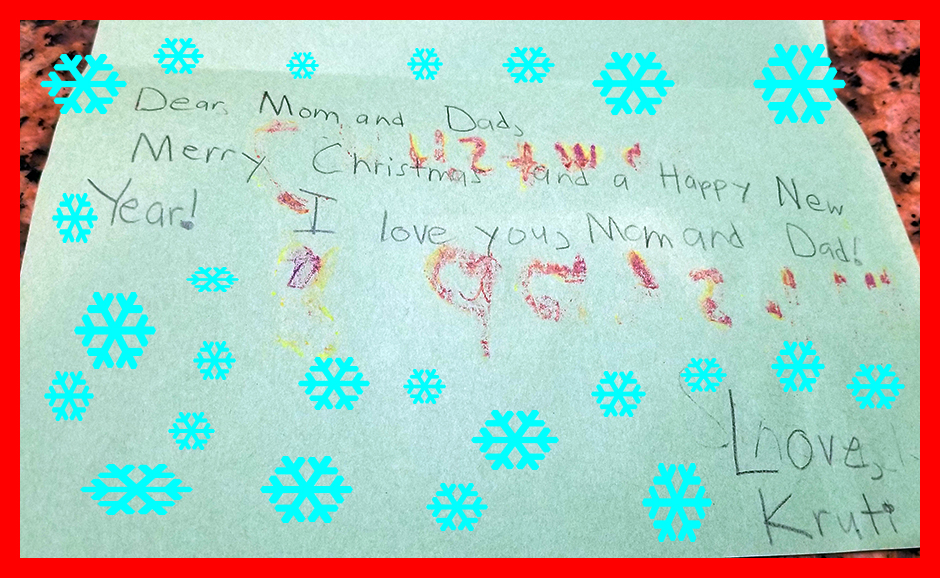 Dear Mom and Dad,
Merry Christmas and a Happy New
Year! I love you, Mom and Dad!
Love,
Kruti